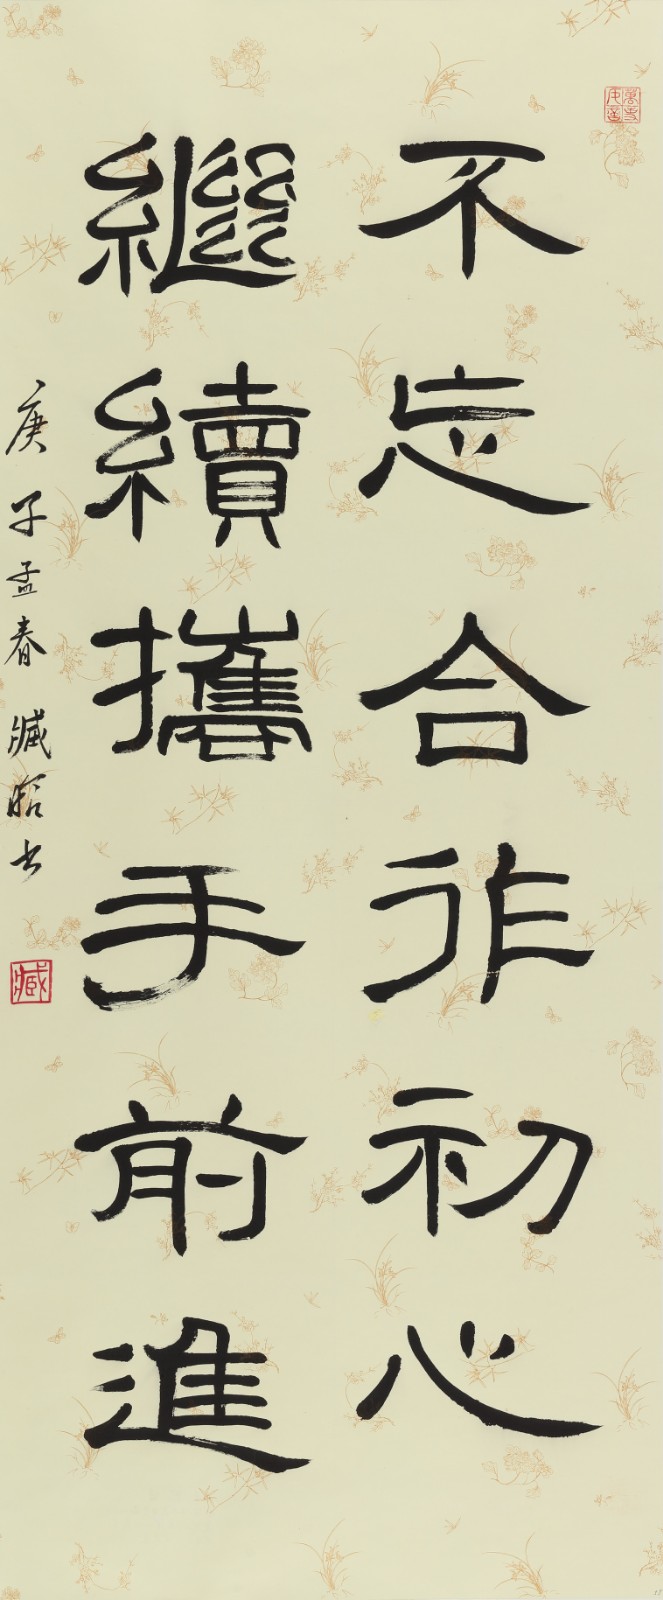 不忘合作初心
繼續攜手前進
庚子孟春臧韜书
臧